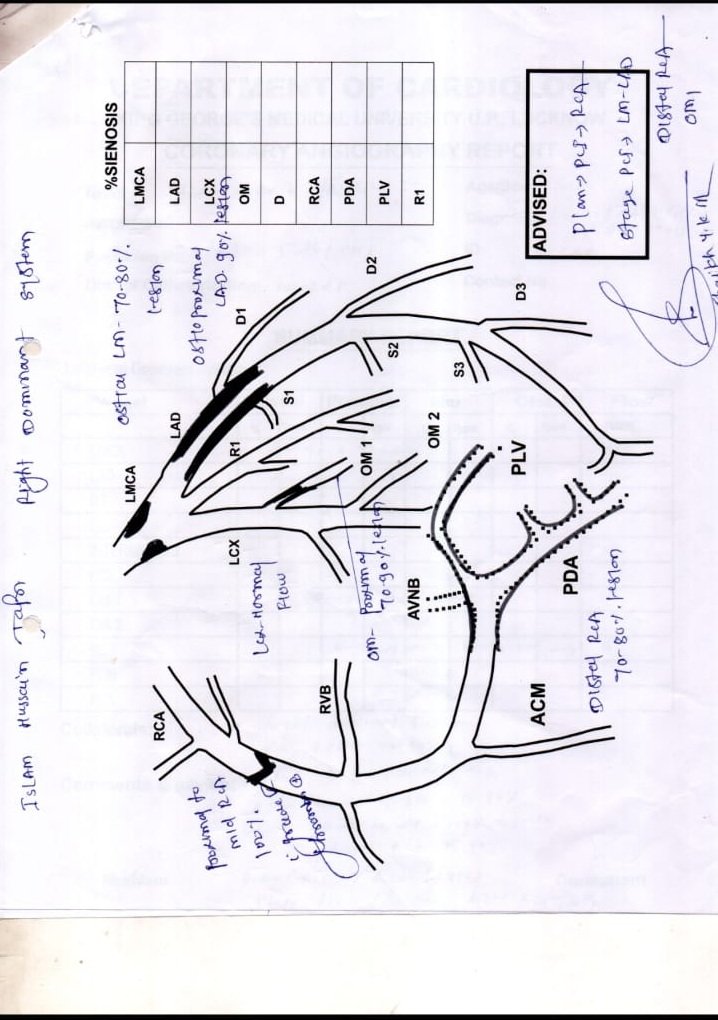 Islam Hussain Jafri Right Dominant system
%SIENOSIS
LMCA
LAD
LCX
OM
D
RCA
PDA
PLV
R1
ADVISED:
Plan→ PCI→ RCA
Stage PCI→ LM-LAD
Distal RCA
OM1
ostial LM - 70-80%
lesion
osteoproximal
LAD-90% lesion
LMCA
LAD
D1
D2
D3
S1
S2
S3
R1
LCX
OM 1
OM 2
LCX-Normal
Flow
OM- Proximal
70-90% lesion
RCA
Proximal to
mid RCA
100%
RVB
AVNB
PLV
PDA
ACM
Distal RCA
70-80% lesion
DEPARTMENT OF CARDIOLOGY
GEORGE'S MEDICAL UNIVERSITY U.P. LUCKNOW
CORONARY ANGIOGRAPHY REPORT